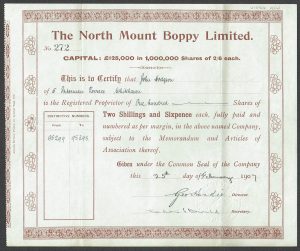 The North Mount Boppy Limited.
No 272
CAPITAL: £125,000 in 1,000,000 Shares of 2/6 each.
This is to Certify that John Hodgson
of 6 Terrace
is the Registered Proprietor of One Hundred Shares of
DISTINCTIVE NUMBERS Two Shillings and Sixpence each, fully paid and
From To numbered as per margin, in the above named Company,
subject to the Memorandum and Articles of
Association thereof.
Given under the Common Seal of the Company
this 25th day of February 1907
Director.
Secretary.